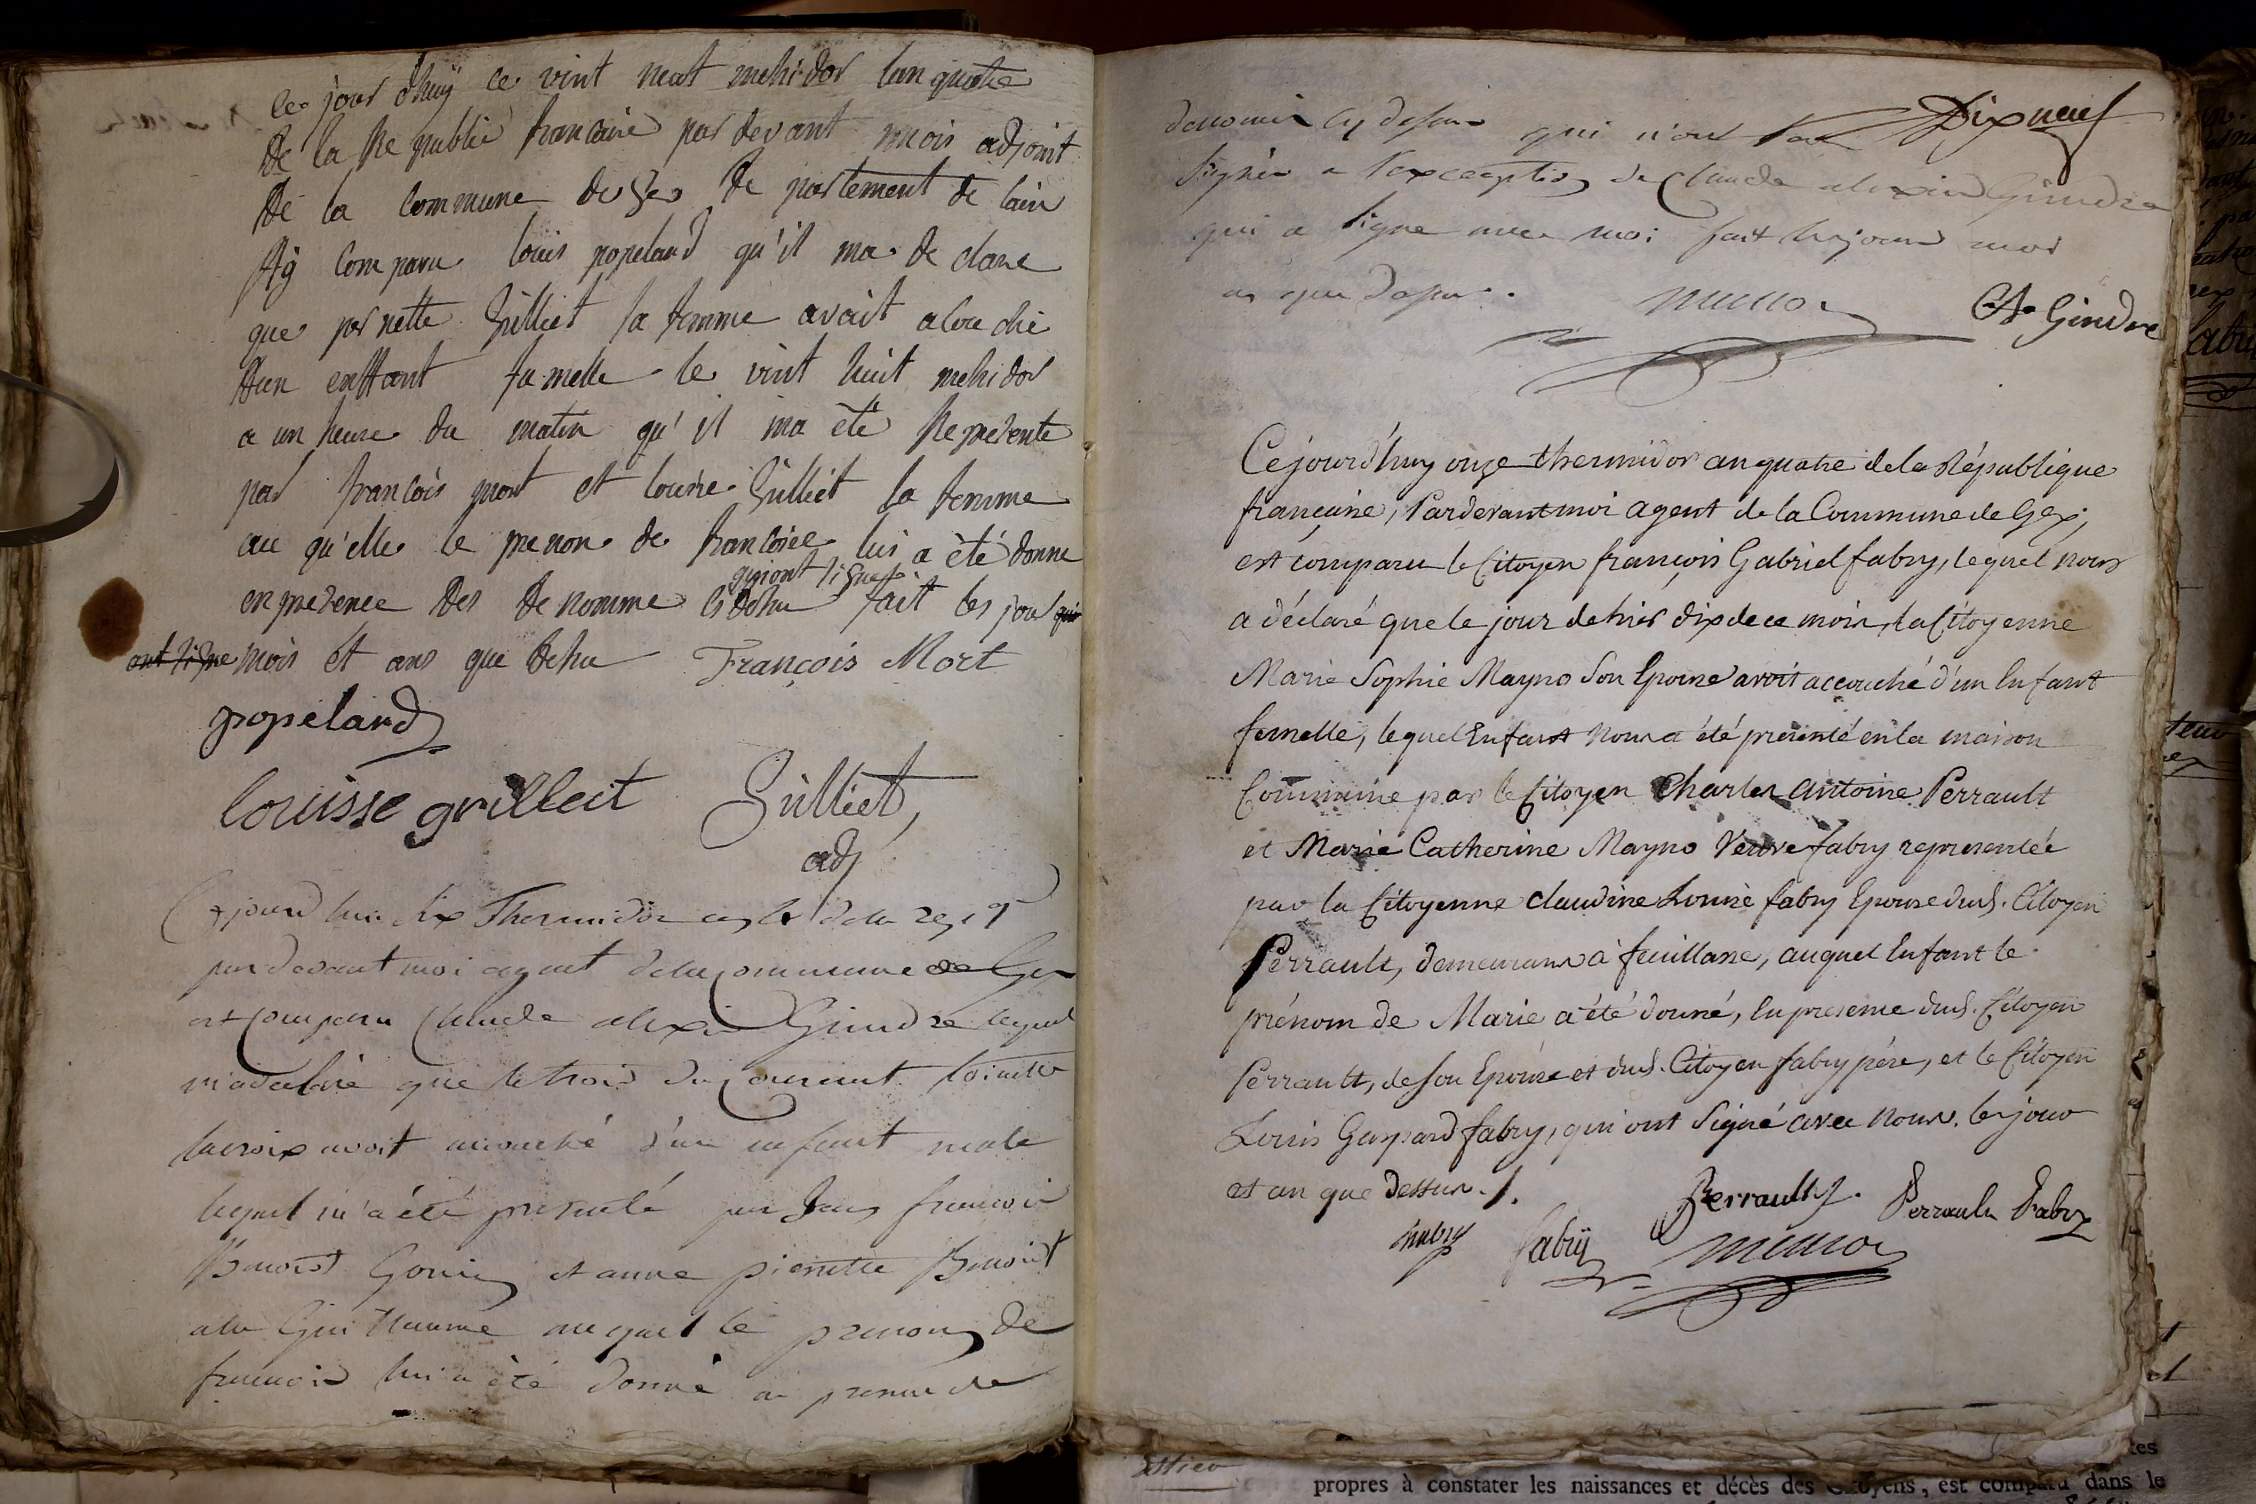 ce jour dhuÿ ce vint neuf mehidor lan quatre
De la Republic francaise par devant mois adjoint
De la commune de Gex De partement de lain
Aÿ comparu louis popelard qu'il ma de clare
que pernette Gilliet sa femme avait alou che
dun enffant fumelle le vint huit mehidor
a un heure du matin qu'il ma été Represente
par francois mort et louise Gilliet sa femme
au qu'elle le prenon de francoise lui a été donne
quiont signe
en presence des de nomme ci dehu fait les jour qui
ont signe mois et ans que dehu François Mort
popelard
louisse grilleit Gilliet,
adj
Cejourd hui dix Thermidor an 4 de la rep
par devant moi agent de la commune de Gex
est comparu Claude alexis Gindre lequel
m'a déclaré que le trois du courant
lacroix avoit accouché d'un enfant male
lequel m'a été présenté par Jean francois
Benoist Gonin et anne pierrette Benoist
alu Guillaume auquel le prenom de
francois lui a été donné en presence de
denomés cy dessus qui n'ont su Dixneuf
signer a l'exception de Claude alexis Gindre
qui a signé avec moi fait les jour mois
an que dessus. Cl Gindre
Cejourd'huy onze thermidor an quatre de la République
française, Pardevant moi agent de la Commune de Gex,
est comparu le Citoyen françois Gabriel fabry, lequel nous
a déclaré que le jour de hier dix de ce mois, la Citoyenne
Marie Sophie Mayno son Epouse avoit accouché d'un Enfant
femelle, lequel Enfant nous a été présenté en la maison
Commune par le Citoyen Charles antoine Perrault
et Marie Catherine Mayno Veuve fabry representée
par la Citoyenne claudine Louise fabry Epouse dud. Citoyen
Perrault, demeurans à feuillasse, auquel Enfant le
prénom de Marie a été donné, En presence dud. Citoyen
Perrault, de son Epouse et dud. Citoyen fabry père, et le Citoyen
Louis Gaspard fabry, qui ont signé avec nous. les jour
et an que dessus ./.
fabry fabrÿ Perrault Perrault Fabry
propres à constater les naissances et décès des Citoyens, est comparu dans le